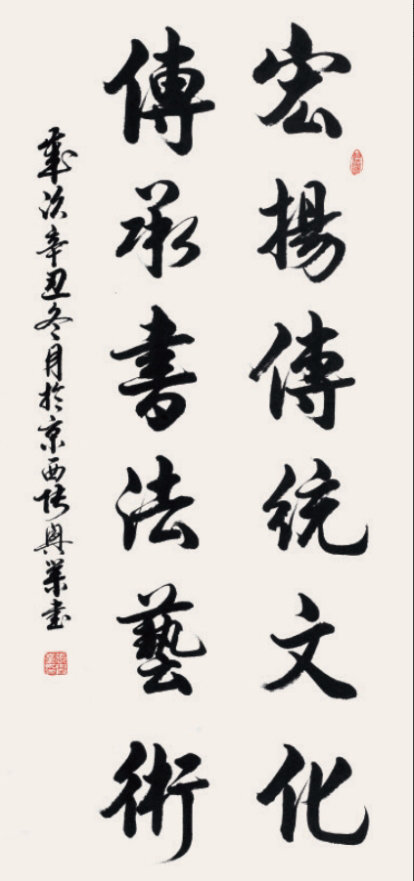 宏揚傳統文化
傳承書法藝術
歲次辛丑冬月於京西張興業書